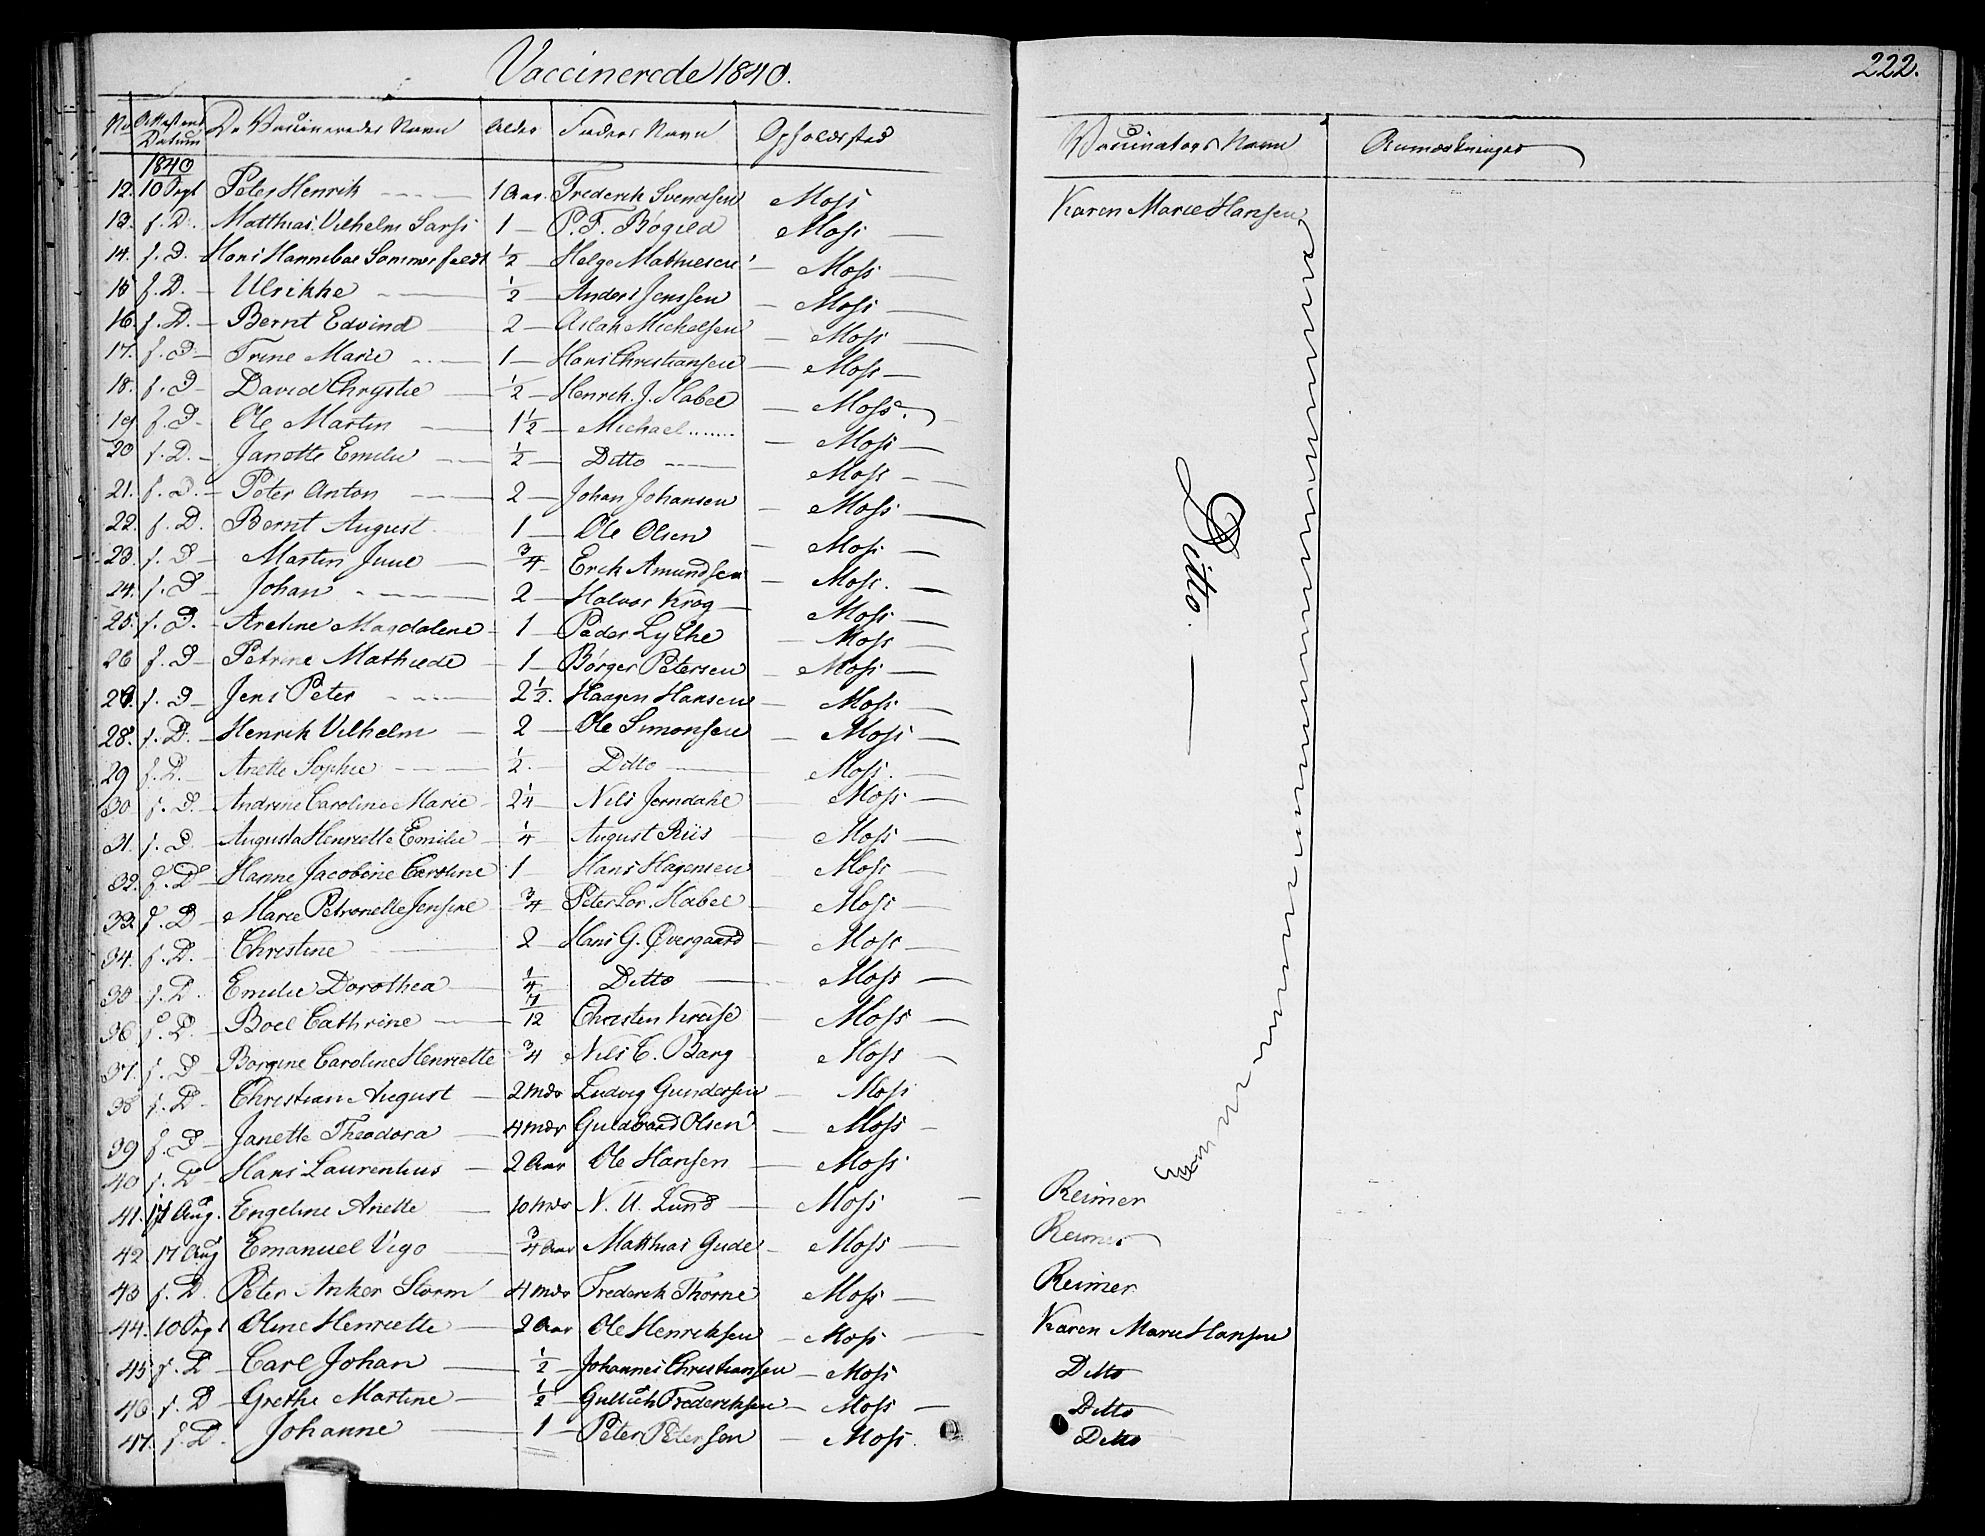 Vaccinerede 1840.
222.
No Attestens Datum De Vaccineredes Navn Alder Faders Navn Opholdssted Vaccinators Navn Anmærkninger
1840
12. 10 Sept Peter Henrik 1 Aar. Frederik Svendsen Moss Karen Marie Hansen
13. f. D. Matthias Vilhelm Sarsi 1 P. F. Bøgild Moss
14. f. D. Hans Hannibal Sommerfeldt 1/2 Helge Mathiesen Moss
15 f. D. Ulrikke 1/2 Anders Jenssen Moss
16. f. D. Bernt Edvind 2 Aslak Michelsen Moss
17. f. D Trine Marie 1 Hans Christiansen Moss
18. f. D David Chrystie 1/2 Henrik J. Habel Moss
19 f. D Ole Martin 1 1/2 Michael ....... Moss
20 f. D. Janette Emilie 1/2 Ditto Moss
21. f. D. Peter Anton 2 Johan Johansen Moss
Ditto.
22. f. D. Bernt August 1 Ole Olsen Moss
23. f. D Martin Juul 3/4 Erik Amundsen Moss.
24. f. D Johan 2 Halvor Krog Moss
25. f. D. Areline Magdalene 1 Peder Lykke Moss
26 f. D Petrine Mathilde 1 Børger Petersen Moss
27. f. D Jens Peter 2 1/2. Haagen Hansen Moss
28. f. D. Henrik Vilhelm 2 Ole Simonsen Moss
29 f. D. Anette Sophie 1/2. Ditto Moss.
30 f. D. Andrine Caroline Marie 2 1/4 Nils Jerndahl Moss
31. f. D. Augusta Henriette Emilie 1/4 August Riis Moss
32. f. D Hanne Jacobine Caroline 1 Hans Hagensen Moss
33. f. D Marie Petronelle Jensine 3/4 Peter Lor. Habel Moss
34. f. D. Christine 2 Hans G. Øvergaard Moss
35 f. D. Emilie Dorothea 1/4 Ditto Moss
36. f. D. Boel Cathrine 7/12 Christen Kruse Moss
37. f. D Borgine Caroline Henriette 3/4 Nils C. Barg Moss
38 f. D Christian August 2 Mdr Ludvig Gundersen Moss
39 f. D Janette Theodora 4 Mdr Guldbrand Olsen Moss
40 f. D Hans Laurentius 2 Aar Ole Hansen Moss
41. 17 Aug. Engeline Anette 10 Mdr N. U. Lund Moss Reimer
42 17 Aug Emanuel Vigo 3/4 Aar Matthias Gude Moss Reimer
43 f. D. Peter Anker Storm 4 Mdr Frederik Thorne Moss Reimer
44. 10 Sept Oline Henriette 2 Aar Ole Henriksen Moss Karen Marie Hansen
45 f. D Carl Johan 1/2 Johannes Christiansen Moss Ditto
46 f. D Grethe Martine 1/2 Gullich Frederiksen Moss Ditto
47. f. D. Johanne 1 Peter Petersen Moss. Ditto